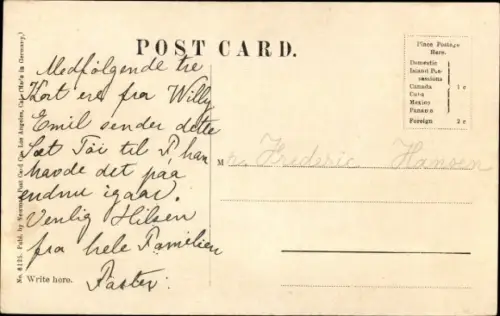 POST CARD.
Place Postage
Here.
Domestic
Island Pos-
sessions
Canada
Cuba
Mexico
Panama
1 c
Foreign 2 c
Medfølgende tre
Kort ere fra Willy
Emil sender dette
Sæt Töi til P, han
havde det paa
endnu igaar.
Venlig Hilsen
fra hele Familien
Faster.
M rs Frederic Hansen
Write here.
No. 6125. Publ. by Newman Post Card Co., Los Angeles, Cal. (Made in Germany.)